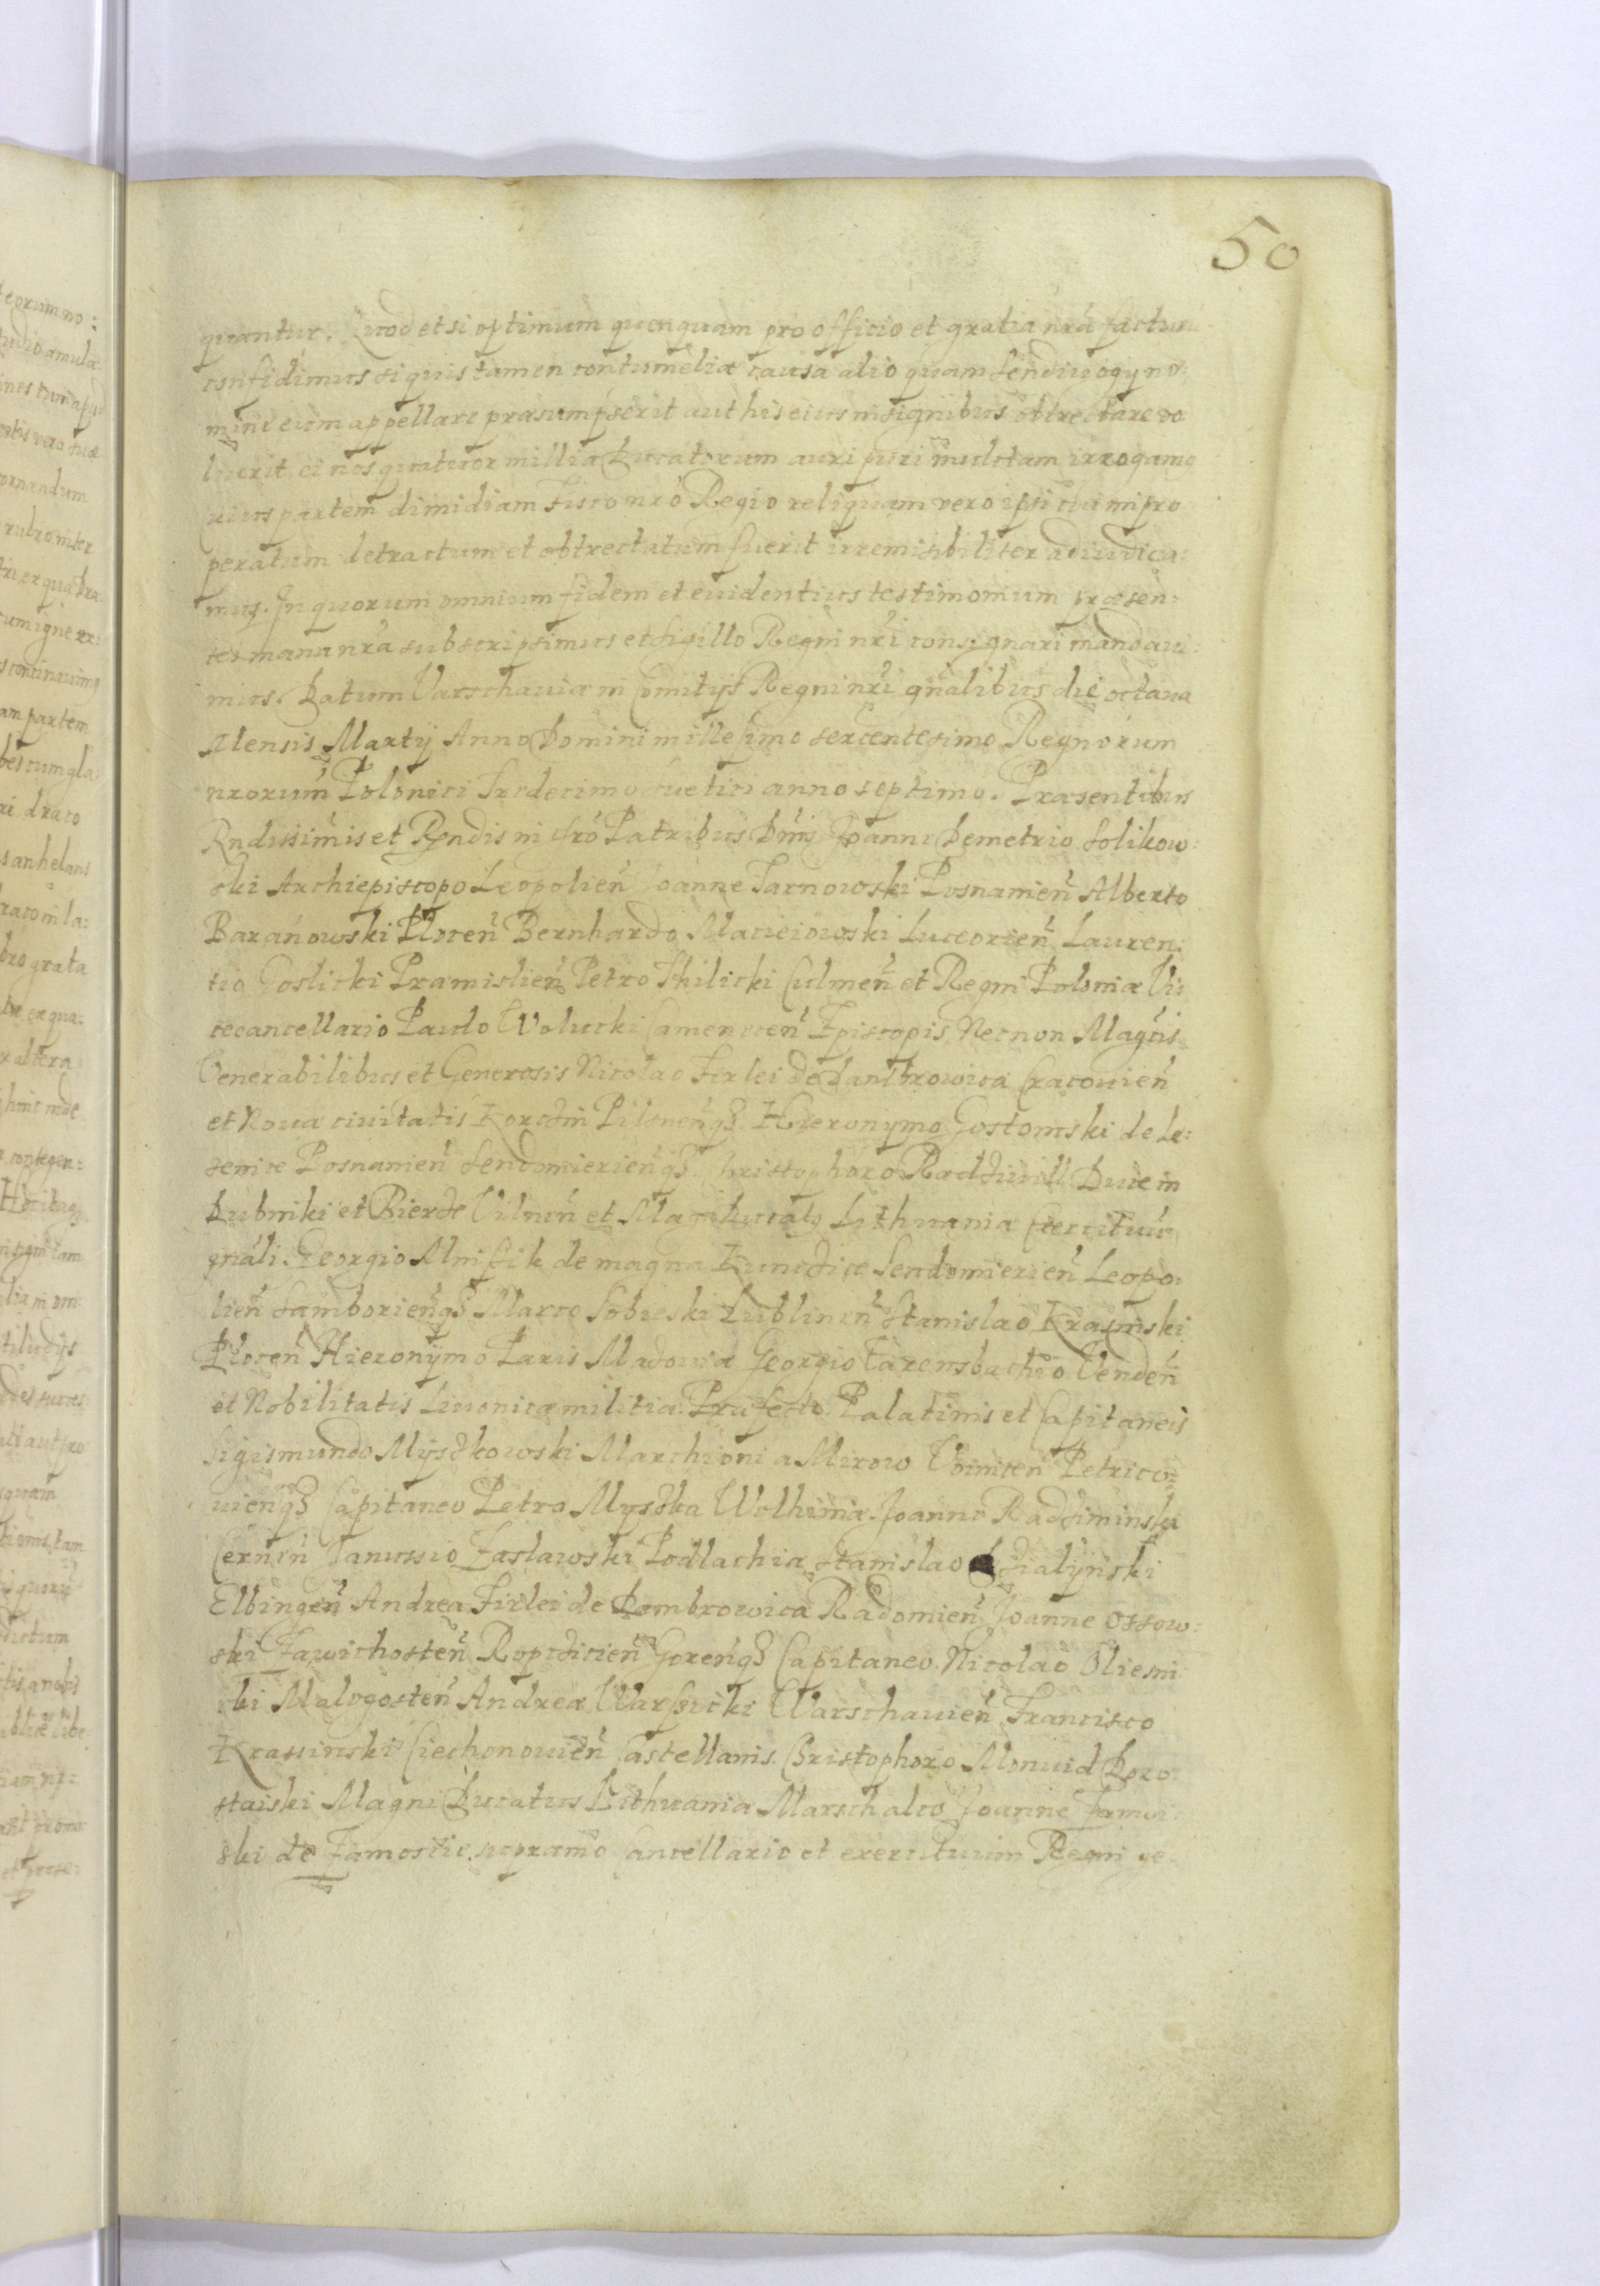 50
quantur. Quod etsi optimum quenquam pro officio et gratia nra facturu
confidimus siquis tamen contumeliæ causa alio quam Sendiuogy no:
mine eum appellare præsumpserit aut his eius insignibus obtrectare vo
luerit ei nos quatuor millia Ducatorum auri puri mulctam irrogamus
cuius partem dimidiam Fisco nro Regio reliquam vero ipsi cui impro
peratum detractum et obtrectatum fuerit irremisibiliter adiudica:
mus. In quorum omnium fidem et euidentius testimonium præsen:
tes manu nra subscripsimus et Sigillo Regni nri consignari mandaui:
mus. Datum Varschauiæ in Comitys Regni nri gnalibus die octaua
Mensis Marty Anno Domini millesimo sexcentesimo Regnorum
nrorum Polonici Tredecimo Suetici anno septimo. Præsentibus
Rndissimis et Rndis in Chro Patribus Dnis Joanne Demetrio Solikow:
ski Archiepiscopo Leopolien Joanne Tarnowski Posnanien Alberto
Baranowski Plocen Bernhardo Macieiowski Luceorien Lauren:
tio Goslicki Præmislien Petro Thilicki Culmen et Regni Poloniæ Vi
cecancellario Paulo Volucki Camenecen Episcopis Necnon Magcis
Venerabilibus et Generosis Nicolao Firlei de Dambrowica Cracouien
et Noua ciuitatis Korcdin Pilsnenqꝫ Hieronymo Gostomski de Le:
zenice Posnanien Sendomierienqꝫ Christophoro Raddiuill Duce in
Dubinki et Bierde Vilnen et Magni Ducatus Lithuania Exercituu
gnali. Georgio Mnissek de magna Kuncdice Sendomierien Leopo:
lien Samborienqꝫ Marco Sobieski Lublinen Stanislao Krasinski
Plocen Hieronymo Paris Masouiæ Georgio Farensbachio Venden
et Nobilitatis Liuonicæ militiæ Præfecto. Palatinis et Capitaneis
Sigismundo Myszkowski Marchioni a Mirow Voinicen Petrico:
uienqꝫ Capitaneo Petro Myszka Wolhiniæ Joanne Raddiminski
Cernen Janussio Zaslawski Podlachia Stanislao Dzialynski
Elbingen Andrea Firlei de Dombrowica Radomien Joanne Ossow:
ski Zawichosten Ropcdicien Gorenqꝫ Capitaneo. Nicolao Oliesni:
cki Malogosten Andrea Warssicki Warschauien Francisco
Krassinski Ciechonouien Castellanis. Christophoro Monuid Doro
staiski Magni Ducatus Lithuania Marschalco Joanne Zamoi
ski de Zamoscie supramo Cancellario et exercituum Regni ge